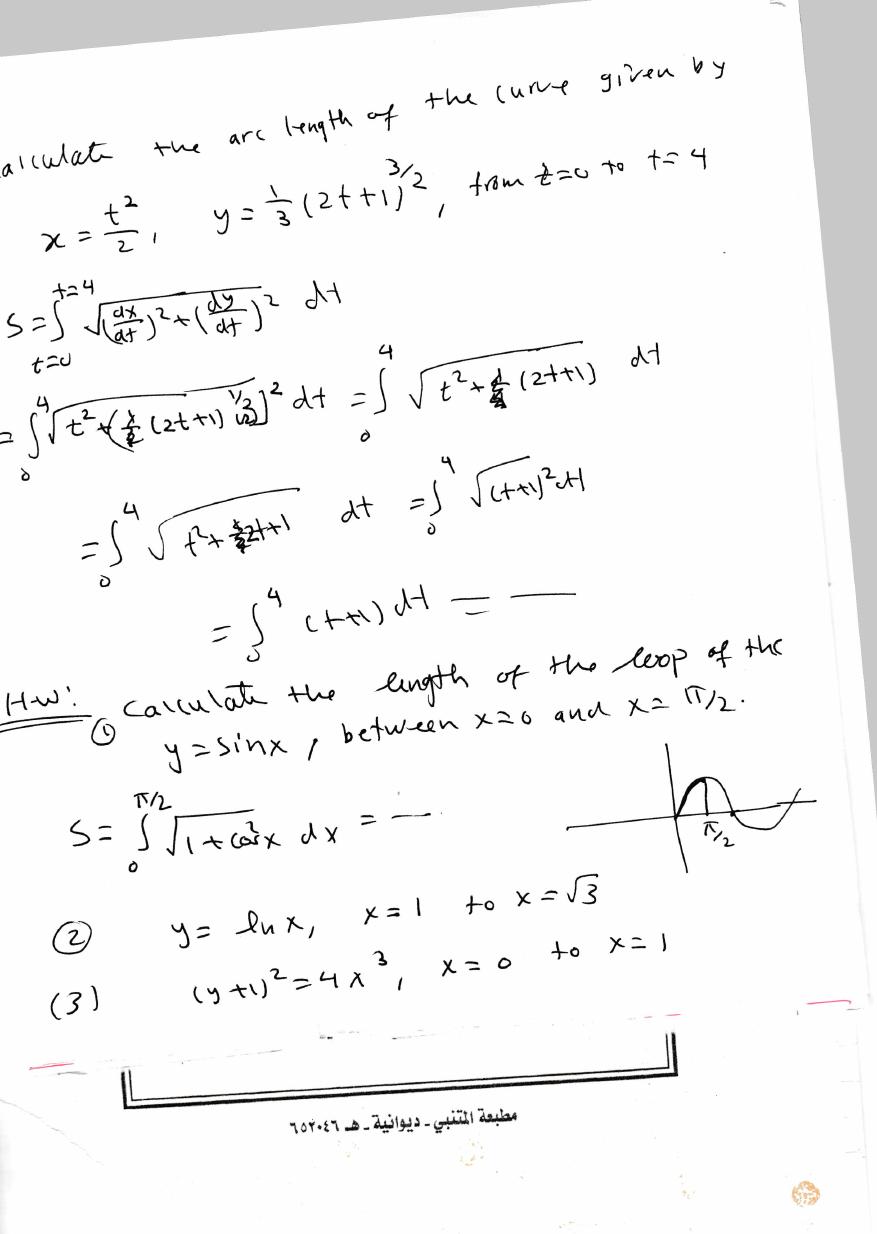 alculate the arc length of the curve given by
x = t²/2 , y = 1/3 (2t+1)^3/2 , from t=0 to t=4
S = ∫_{t=0}^{t=4} √((dx/dt)² + (dy/dt)²) dt
= ∫_0^4 √(t² + ( (2t+1)^1/2 )² dt = ∫_0^4 √(t² + (2t+1)) dt
= ∫_0^4 √(t² + 2t+1) dt = ∫_0^4 √(t+1)² dt
= ∫_0^4 (t+1) dt = —
H.W: ① Calculate the length of the loop of the
y = sinx , between x=0 and x= π/2.
S = ∫_0^{π/2} √(1+cos²x) dx = —
π/2
② y = ln x, x=1 to x=√3
(3) (y+1)² = 4x³ , x=0 to x=1
مطبعة المتنبي - ديوانية - هـ ٦٥٢٠٤٦